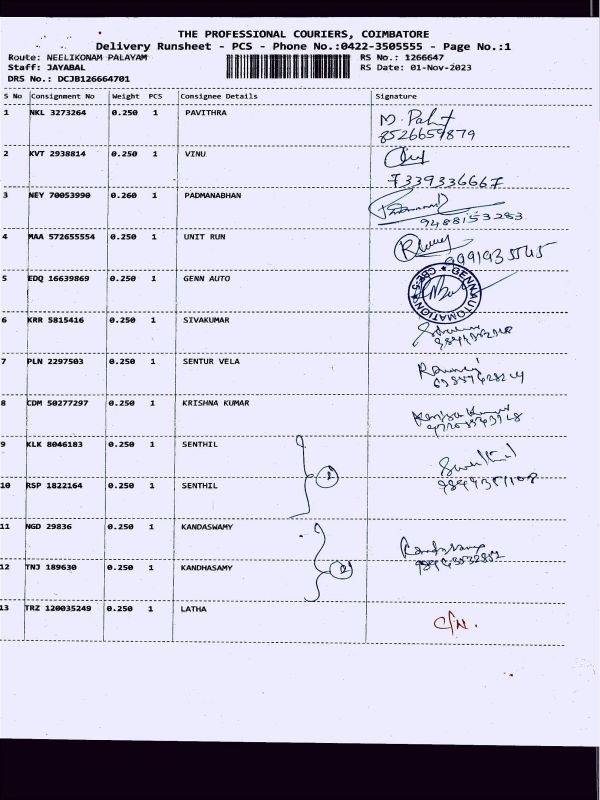 THE PROFESSIONAL COURIERS, COIMBATORE
Delivery Runsheet - PCS - Phone No.:0422-3505555 - Page No.:1
Route: NEELIKONAM PALAYAM RS No.: 1266647
Staff: JAYABAL RS Date: 01-Nov-2023
DRS No.: DCJB126664701
S No Consignment No Weight PCS Consignee Details Signature
1 NKL 3273264 0.250 1 PAVITHRA
8526659879
2 KVT 2938814 0.250 1 VINU
7339336667
3 NEY 70053990 0.260 1 PADMANABHAN
9488153253
4 MAA 572655554 0.250 1 UNIT RUN
5 EDQ 16639869 0.250 1 GENN AUTO
GENN AUTOMATION CBE-5
6 KRR 5815416 0.250 1 SIVAKUMAR
7 PLN 2297503 0.250 1 SENTUR VELA
8 CDM 50277297 0.250 1 KRISHNA KUMAR
9 KLK 8046183 0.250 1 SENTHIL
10 RSP 1822164 0.250 1 SENTHIL
2
11 NGD 29836 0.250 1 KANDASWAMY
12 TNJ 189630 0.250 1 KANDHASAMY
2
13 TRZ 120035249 0.250 1 LATHA
C/N.